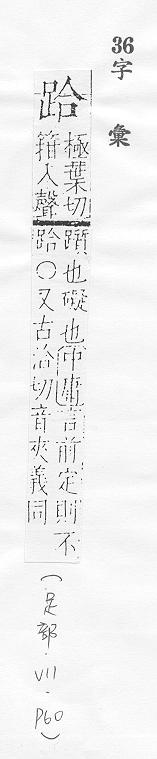 36字彙
跲
極葉切
箝入聲
躓也礙也中庸言前定則不
跲○又古洽切音夾義同
（足部．VII．P60）